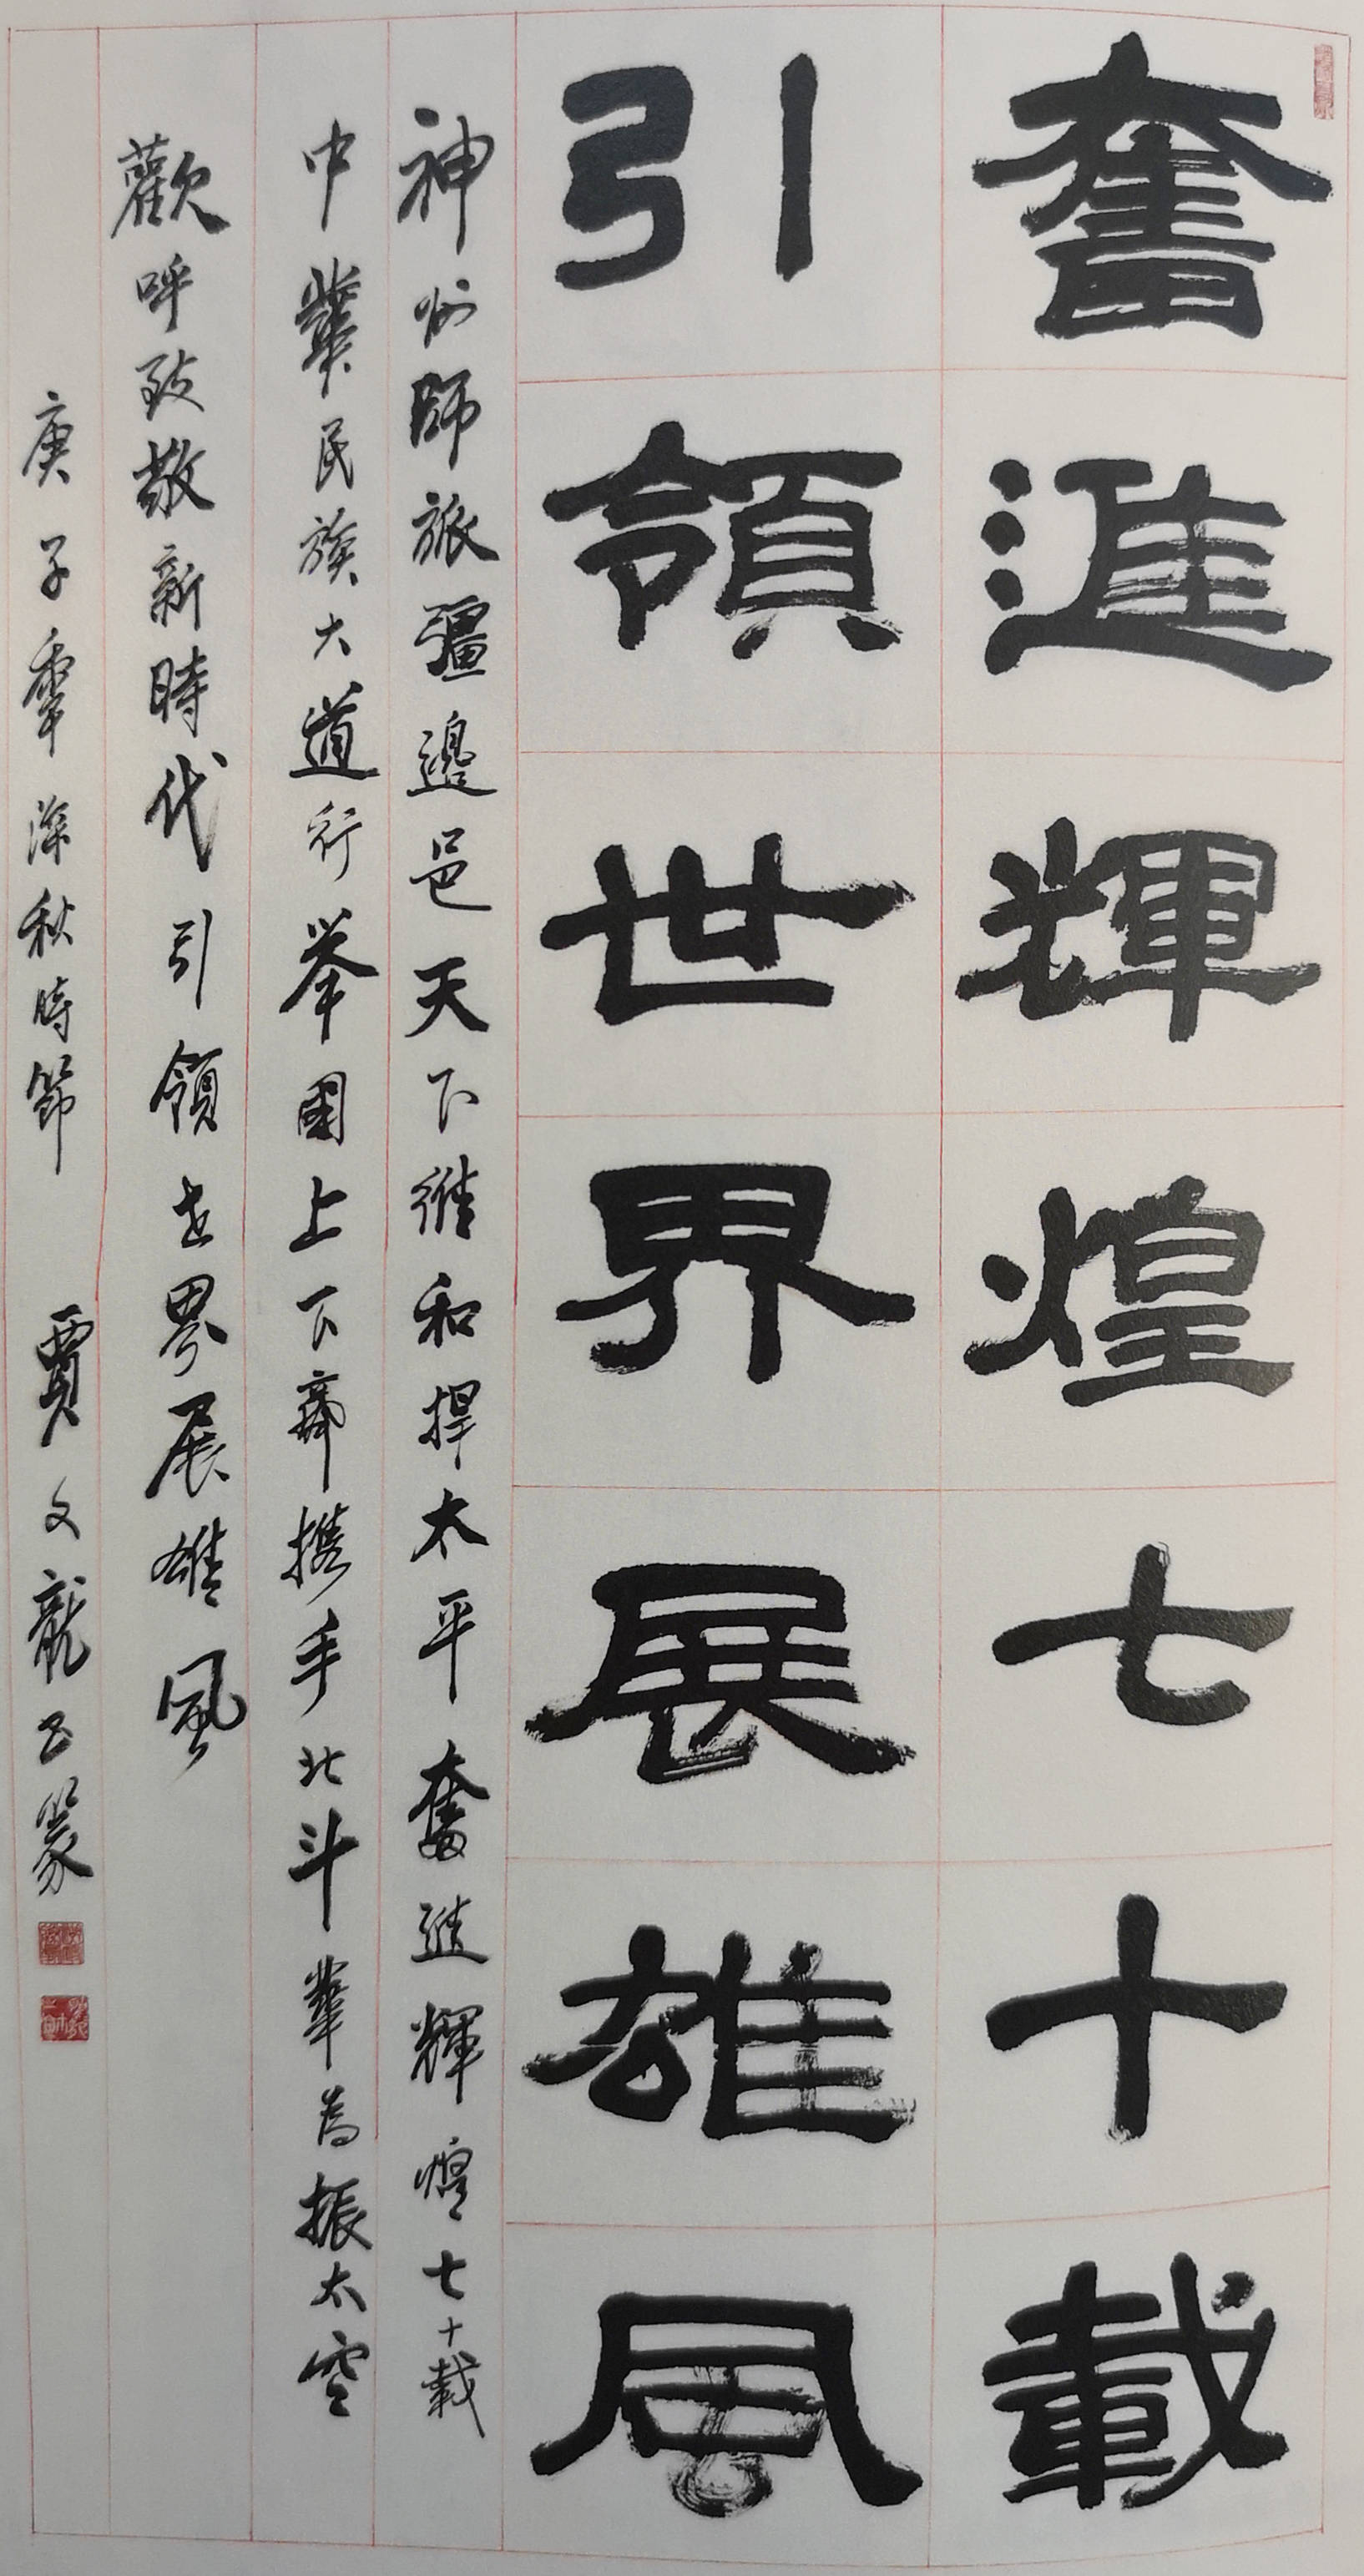 奮進輝煌七十載
引領世界展雄風
神州師旅疆邊邑天下維和捍太平奮進輝煌七十載
中華民族大道行举國上下齊携手北斗輩為振太空
歡呼致敬新時代引領世界展雄風
庚子季深秋時節 賈文龍書篆